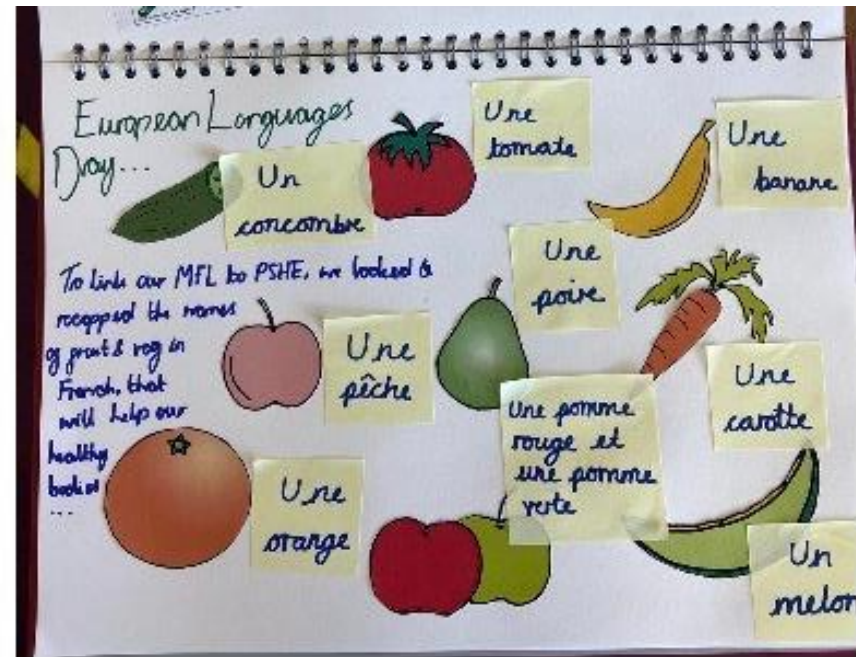 European Languages
Day...
Un
concombre
Une
tomate
Une
banane
To link our MFL to PSHE, we looked &
recapped the names
of fruit & veg in
French, that
will help our
healthy
bodies
...
Une
pêche
Une
poire
Une
carotte
Une pomme
rouge et
une pomme
verte
Une
orange
Un
melon